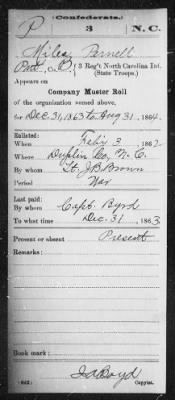 (Confederate.)
P 3 N.C.
Miles Parnell
Pvt, Co. B, 3 Reg't North Carolina Inf.
(State Troops.)
Appears on
Company Muster Roll
of the organization named above,
for Dec. 31, 1863 to Aug 31, 1864.
Enlisted:
When Feby 3, 1862
Where Duplin Co, N. C.
By whom Lt. J. B. Brown
Period War
Last paid:
By whom Capt. Byrd
To what time Dec. 31, 1863
Present or absent Present
Remarks:
Book mark:
(642)
Copyist.